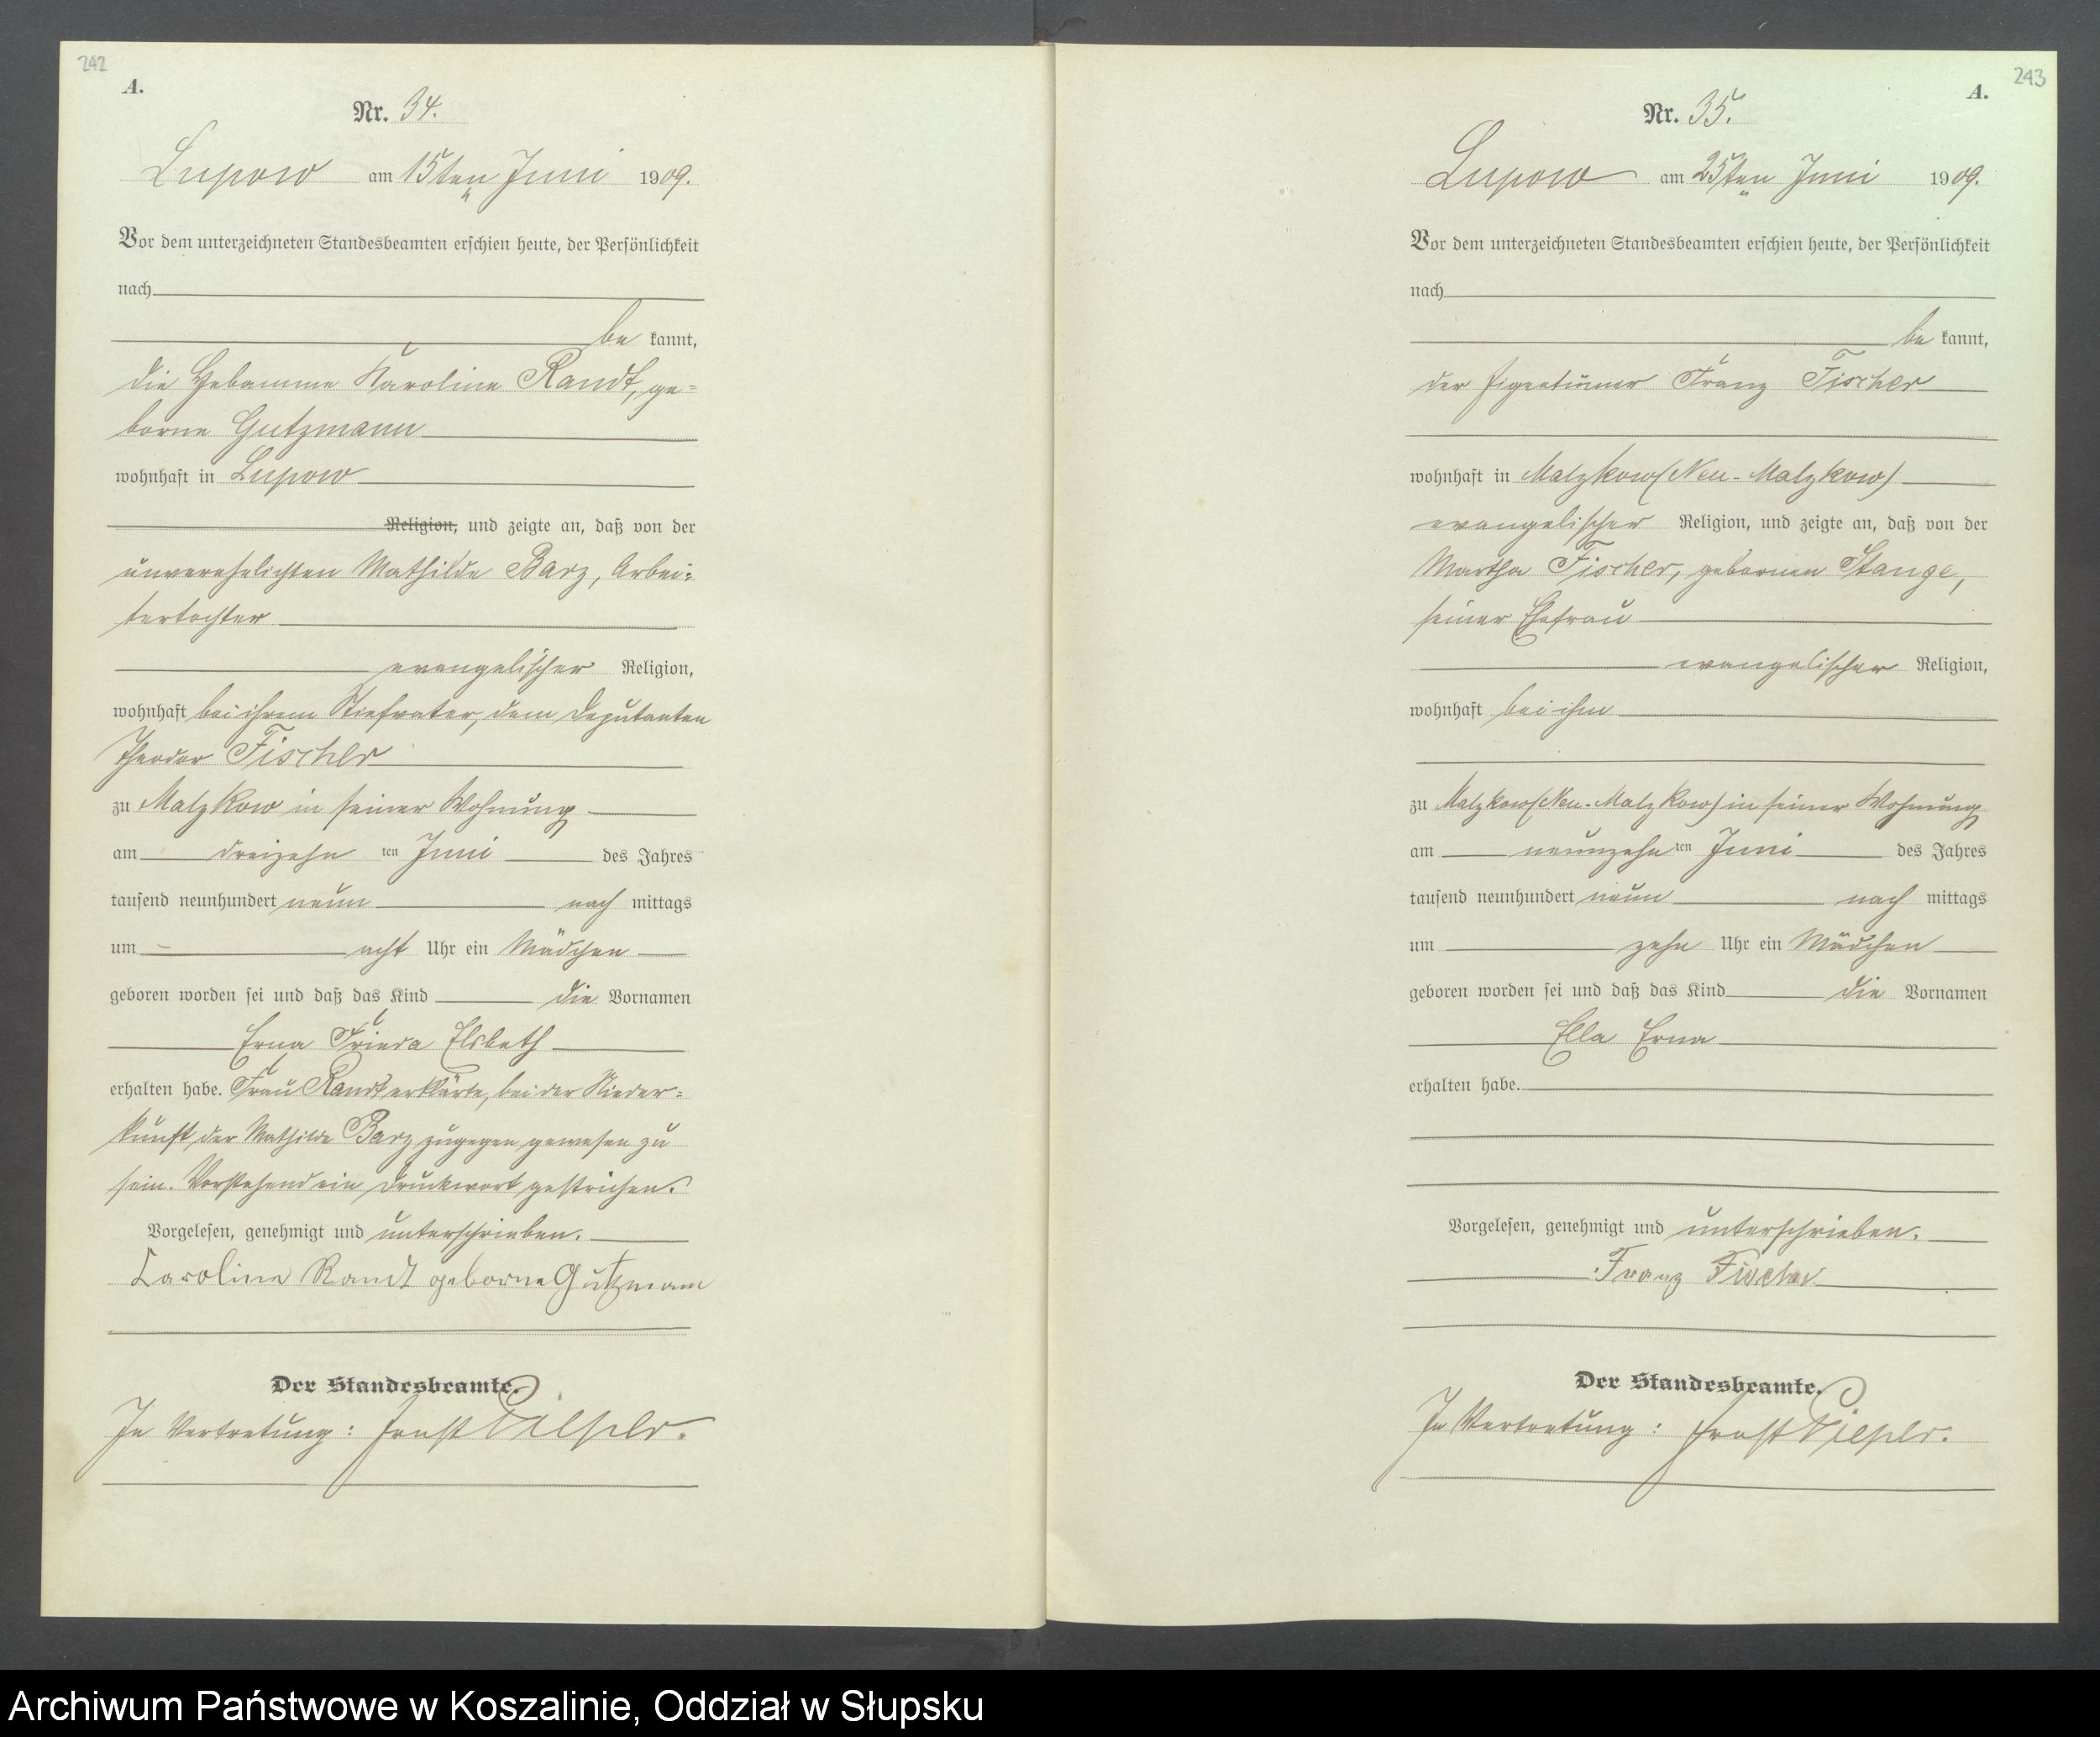 242
A.
Nr. 34.
Lupow am 15ten Juni 1909.
Vor dem unterzeichneten Standesbeamten erschien heute, der Persönlichkeit
nach
be kannt,
die Hebamme Karoline Randt, ge=
borne Gutzmann
wohnhaft in Lupow
Religion, und zeigte an, daß von der
unverehelichten Mathilde Barz, Arbei=
tertochter
evangelischer Religion,
wohnhaft bei ihrem Stiefvater, dem Deputanten
Theodor Fischer
zu Malzkow in seiner Wohnung
am dreizehn ten Juni des Jahres
tausend neunhundert neun nach mittags
um acht Uhr ein Mädchen
geboren worden sei und daß das Kind die Vornamen
Erna Frieda Elsbeth
erhalten habe. Frau Randt erklärte, bei der Nieder=
kunft der Mathilde Barz zugegen gewesen zu
sein. Vorstehend ein Druckwort gestrichen.
Vorgelesen, genehmigt und unterschrieben.
Caroline Randt geborne Gutzmann
Der Standesbeamte.
In Vertretung: Ernst
243
A.
Nr. 35.
Lupow am 25ten Juni 1909.
Vor dem unterzeichneten Standesbeamten erschien heute, der Persönlichkeit
nach
be kannt,
der Eigentümer Franz Fischer
wohnhaft in Malzkow (Neu-Malzkow)
evangelischer Religion, und zeigte an, daß von der
Martha Fischer, gebornen Stange,
seiner Ehefrau
evangelischer Religion,
wohnhaft bei ihm
zu Malzkow (Neu-Malzkow) in seiner Wohnung
am neunzehn ten Juni des Jahres
tausend neunhundert neun nach mittags
um zehn Uhr ein Mädchen
geboren worden sei und daß das Kind die Vornamen
Ella Erna
erhalten habe.
Vorgelesen, genehmigt und unterschrieben.
Franz Fischer
Der Standesbeamte.
In Vertretung: Ernst
Archiwum Państwowe w Koszalinie, Oddział w Słupsku